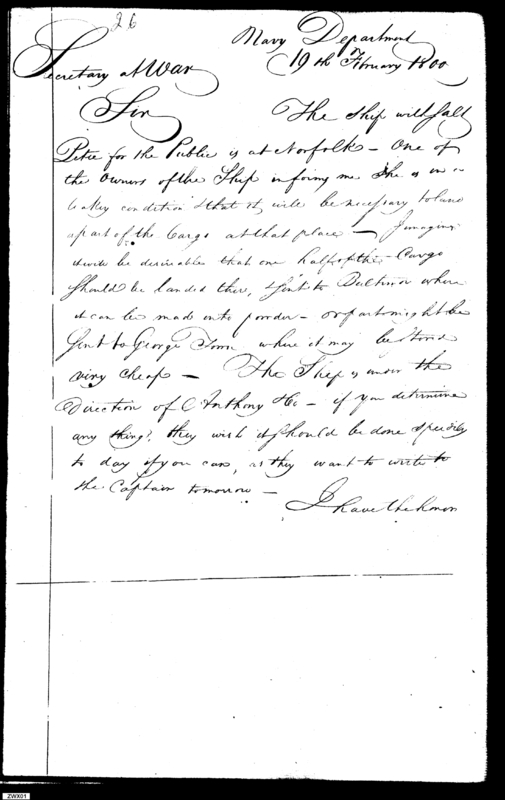 26
Navy Department
19th February 1800
Secretary at War
Sir
The Ship with Salt
Petre for the Public is at Norfolk – One of
the owners of the Ship informs me She is in a
leaky condition & that it will be necessary to land
a part of the Cargo at that place – I imagine
it will be desireable that one half of the Cargo
Should be landed there, & Sent to Baltimore where
it can be made into powder – or a part might be
Sent to George Town where it may be Stored
very cheap – The Ship is under the
Direction of C Anthony & Co – if you determine
any thing, they wish it Should be done speedily
to day if you can, as they want to write to
the Captain tomorrow –
I have the honor
ZWX01